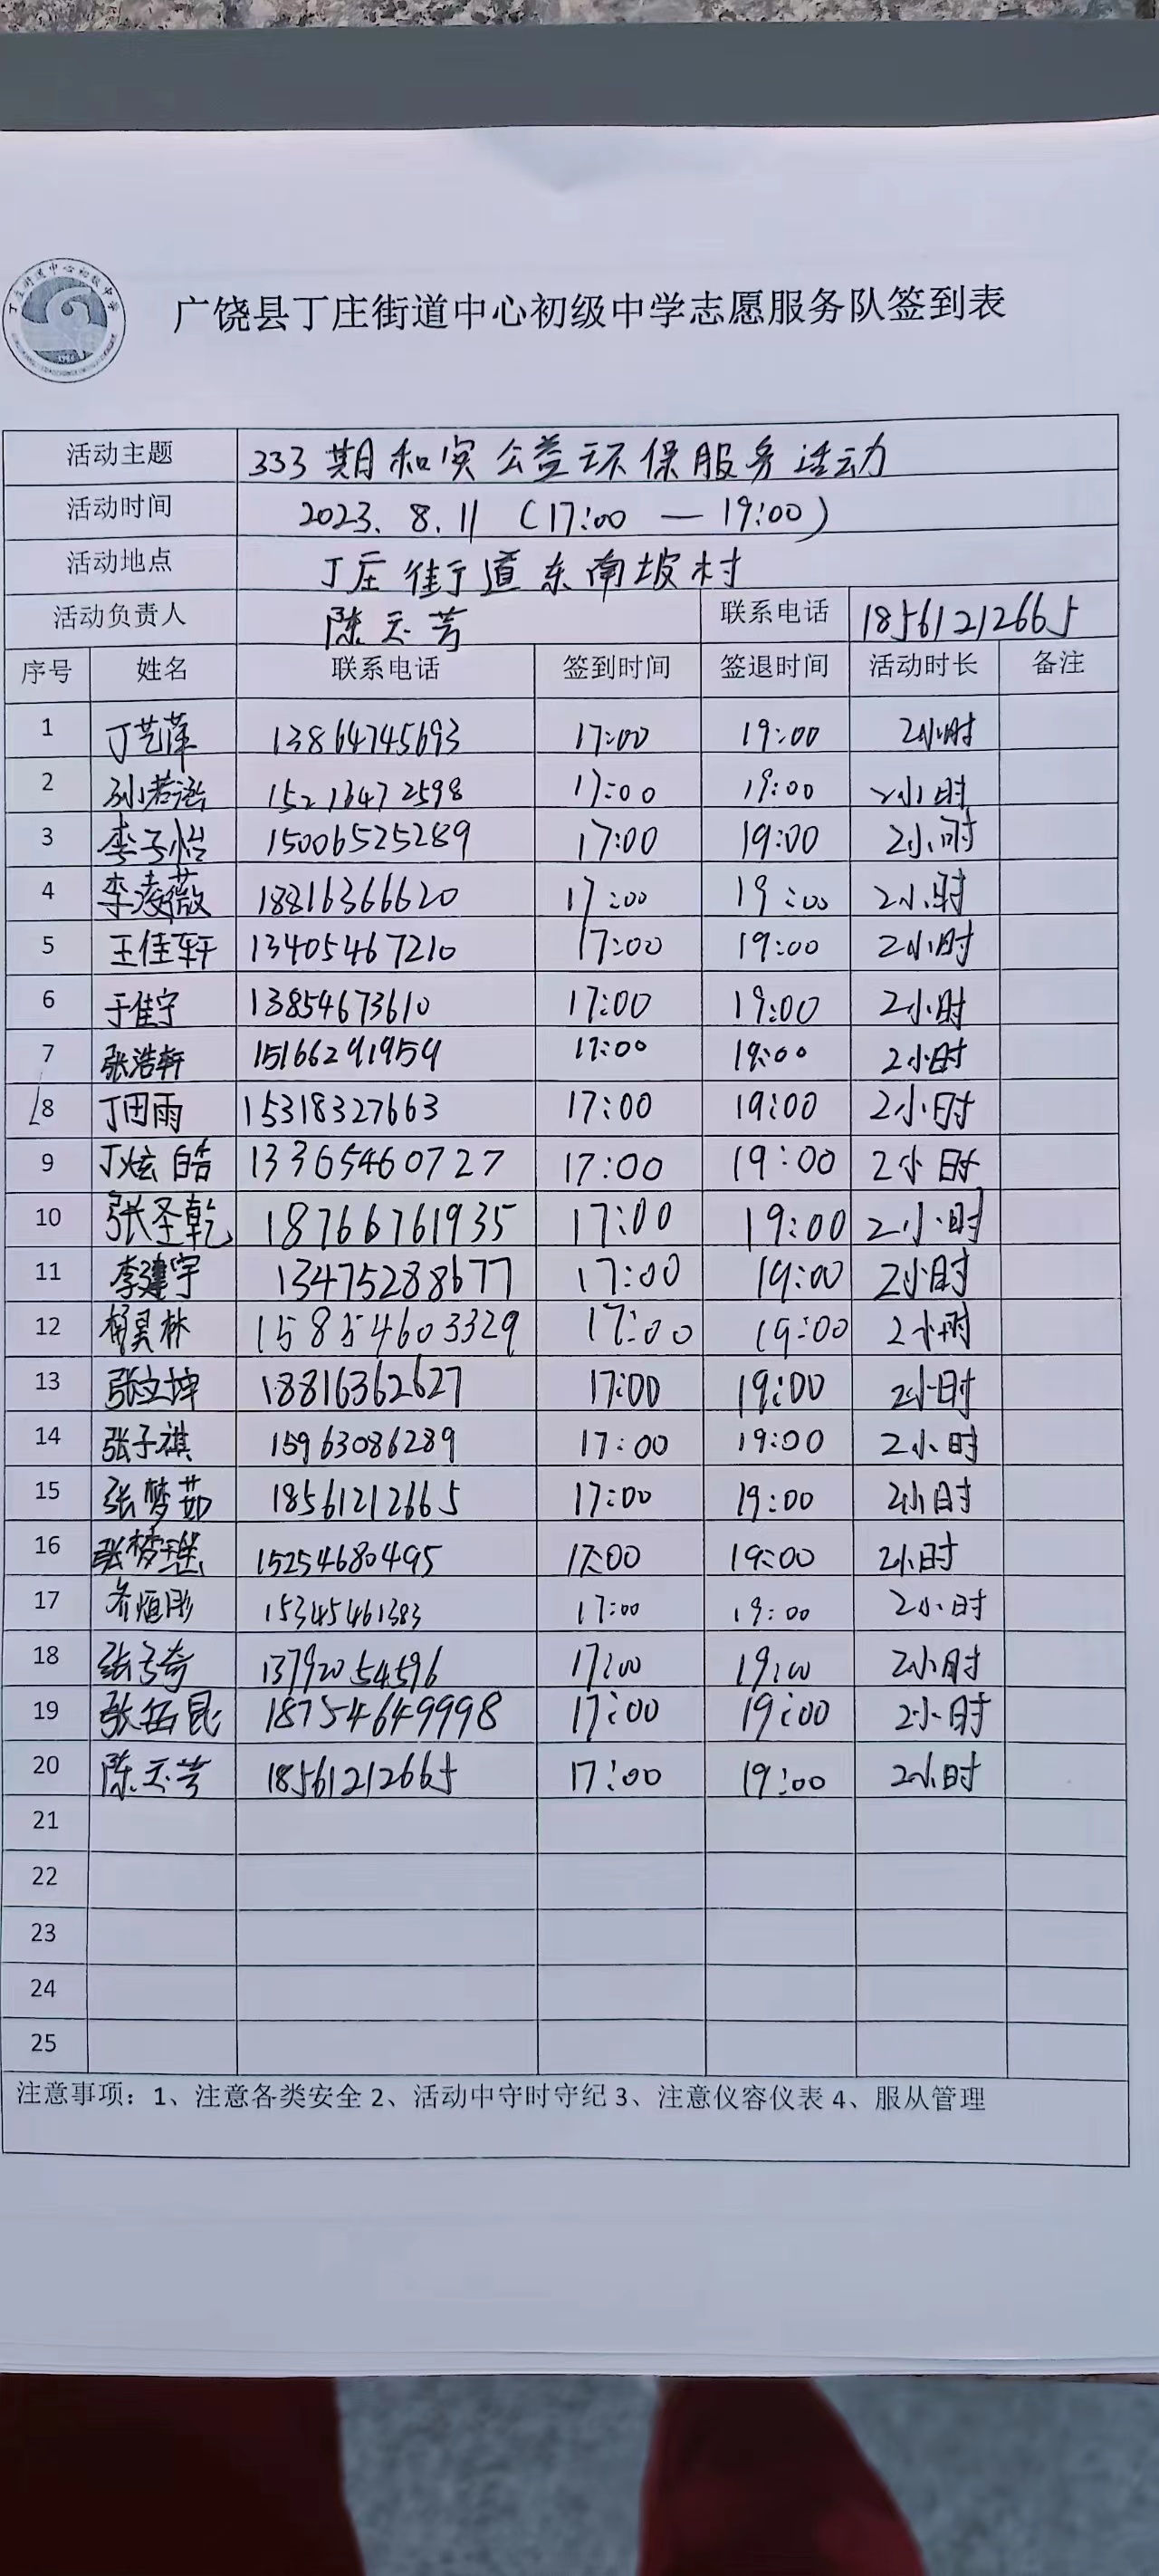 丁庄街道中心初级中学
广饶县丁庄街道中心初级中学志愿服务队签到表
活动主题 333期和实公益环保服务活动
活动时间 2023.8.11 (17:00 — 19:00)
活动地点 丁庄街道东南坡村
活动负责人 陈玉芳 联系电话 18561212665
序号 姓名 联系电话 签到时间 签退时间 活动时长 备注
1 丁艺萍 13864745693 17:00 19:00 2小时
2 孙若涵 15216472598 17:00 19:00 2小时
3 李子怡 15006525289 17:00 19:00 2小时
4 李凌薇 18816366620 17:00 19:00 2小时
5 王佳轩 13405467210 17:00 19:00 2小时
6 于佳宁 13854673610 17:00 19:00 2小时
7 张浩轩 15166291959 17:00 19:00 2小时
8 丁田雨 15318327663 17:00 19:00 2小时
9 丁炫皓 13365460727 17:00 19:00 2小时
10 张圣乾 18766761935 17:00 19:00 2小时
11 李建宇 13475288677 17:00 19:00 2小时
12 杨昊林 158854603329 17:00 19:00 2小时
13 张立坤 18816362627 17:00 19:00 2小时
14 张子祺 15963086289 17:00 19:00 2小时
15 张梦茹 18561212665 17:00 19:00 2小时
16 张梦瑶 15254680495 17:00 19:00 2小时
17 15345461383 17:00 19:00 2小时
18 张奇 13792054596 17:00 19:00 2小时
19 张岳昆 18754649998 17:00 19:00 2小时
20 陈玉芳 18561212665 17:00 19:00 2小时
21
22
23
24
25
注意事项：1、注意各类安全 2、活动中守时守纪 3、注意仪容仪表 4、服从管理